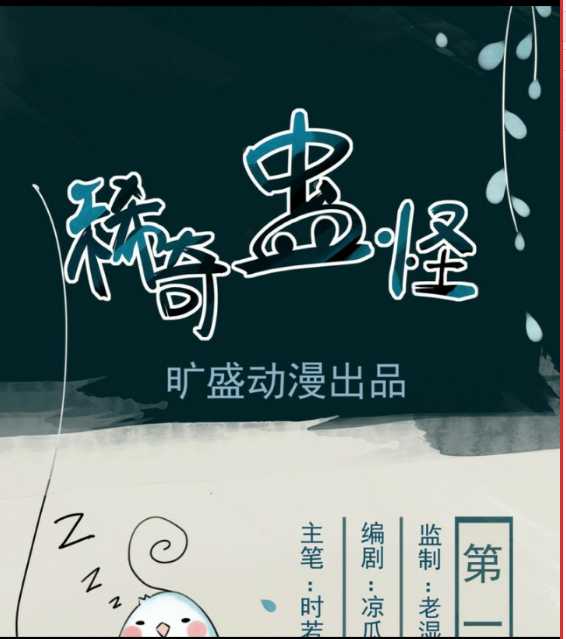 稀奇蛊怪
旷盛动漫出品
第一
监制：老湿
编剧：凉瓜
主笔：时若
Z
Z
Z